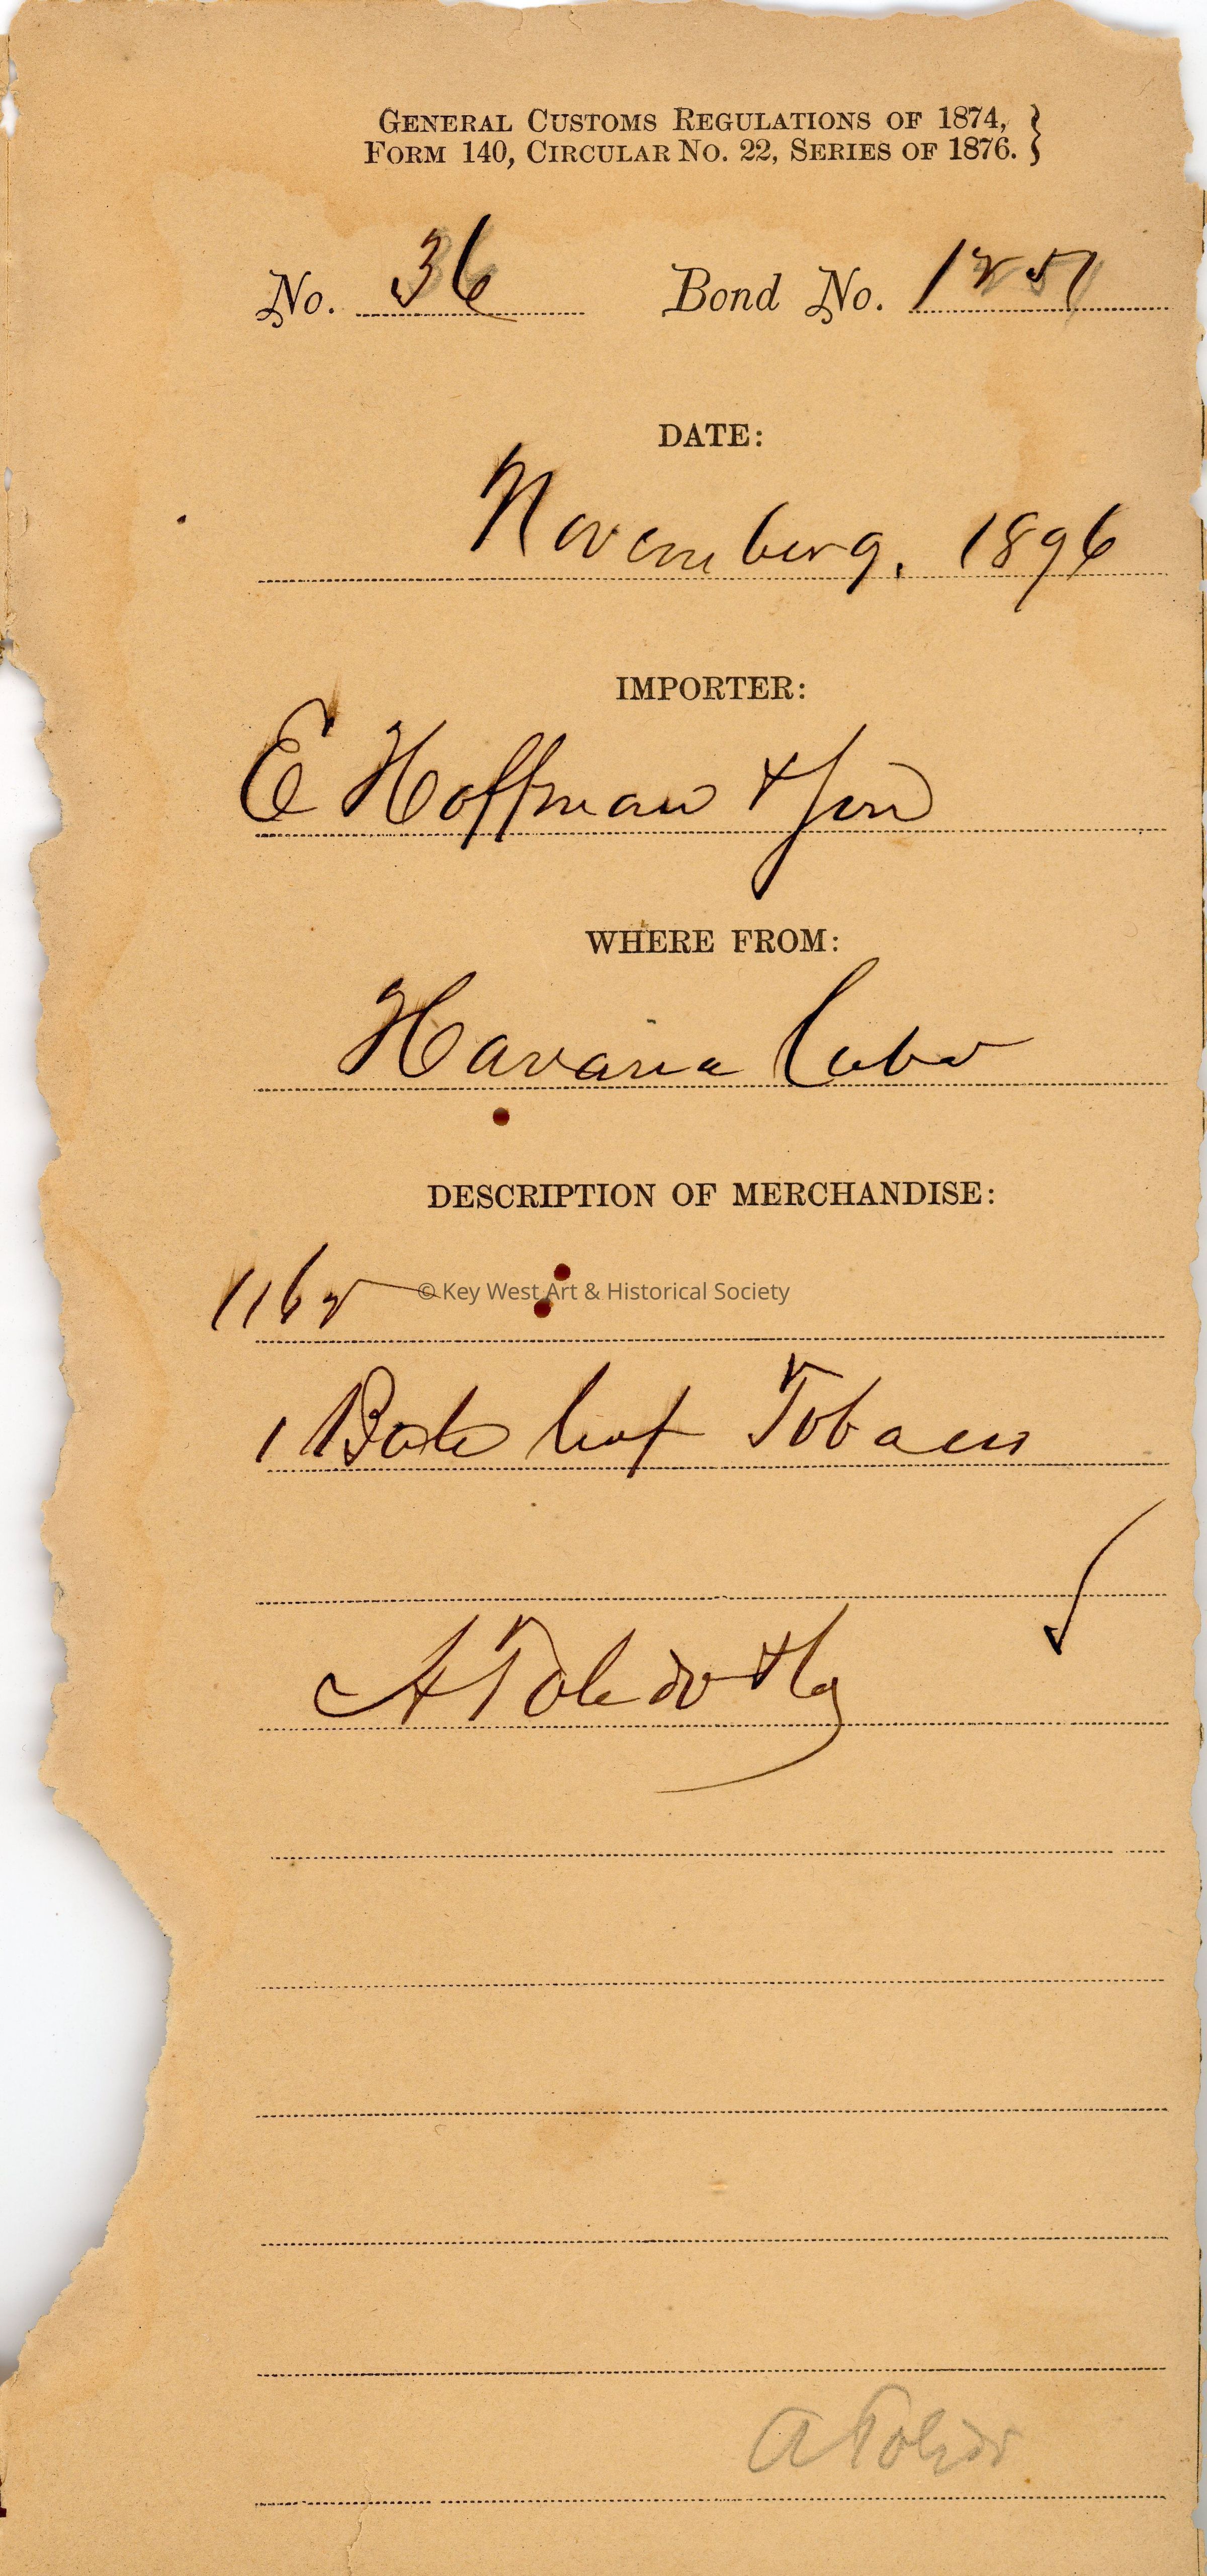 GENERAL CUSTOMS REGULATIONS OF 1874, }
FORM 140, CIRCULAR NO. 22, SERIES OF 1876. }
No. 36 Bond No. 1251
DATE:
November 9, 1896
IMPORTER:
E Hoffman & Son
WHERE FROM:
Havana Cuba
DESCRIPTION OF MERCHANDISE:
1162
© Key West Art & Historical Society
1 Bale leaf Tobacco
A Toledo & Co
A Toledo